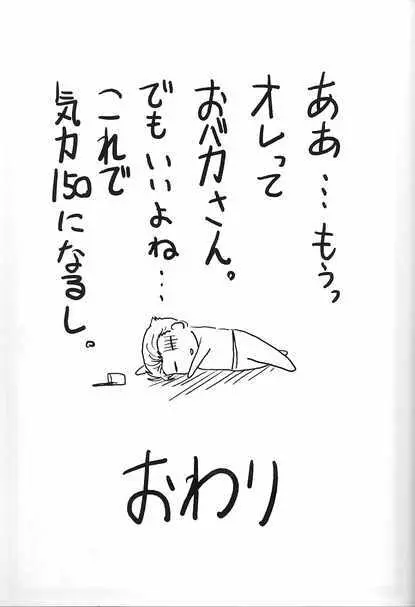 ああ…もうっ
オレって
おバカさん。
でもいいよね…
これで
気力150になるし。
おわり